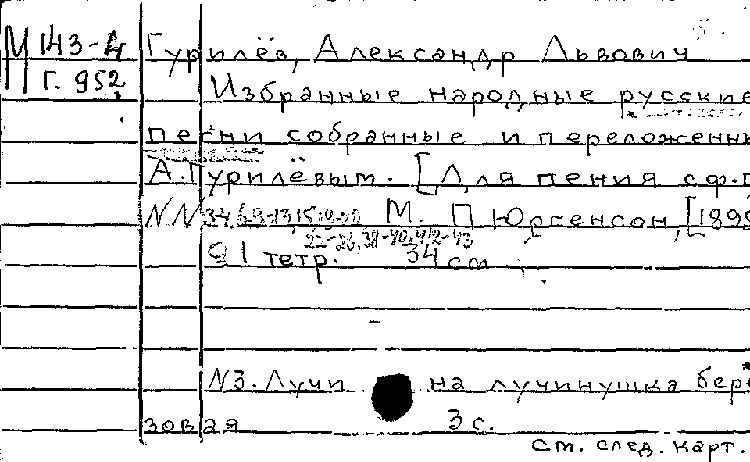 М 143-4 Гурилёв, Александр Львович
Г. 952 Избранные народные русские
песни собранные и переложенны
А.Гурилёвым. [Для пения с ф.п
NN 3,4,6,8-13,15, М. П Юргенсон, [189
22-26, 38-40, 42-43
21 тетр. 34 см
N3. Лучи на лучинушка берё
зовая 3 с.
См. след. карт.